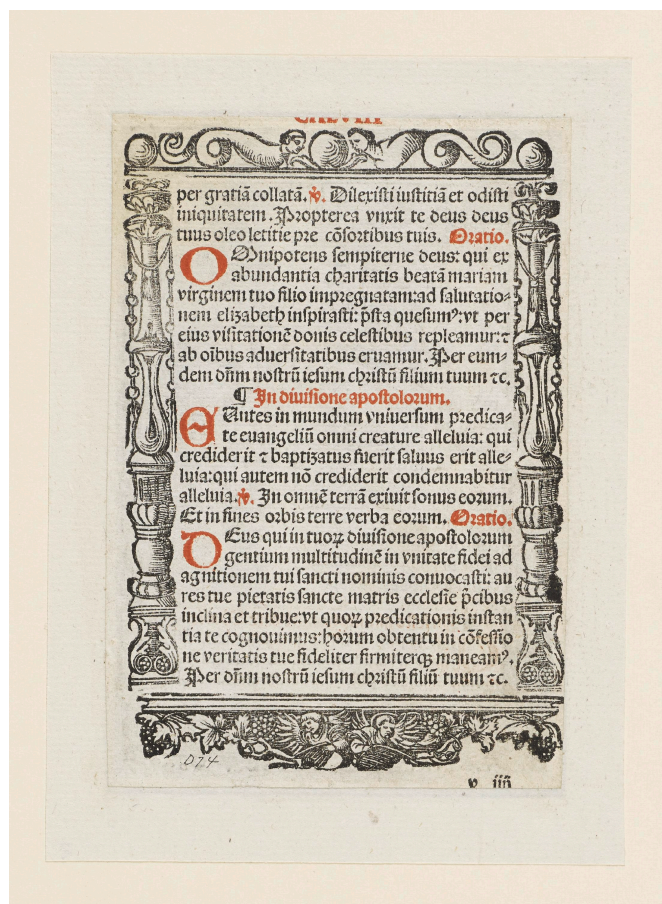 CXLVIII
per gratiã collatã. ℣. Dilexisti iustitiã et odisti
iniquitatem. Propterea vnxit te deus deus
tuus oleo letitie pre cõsortibus tuis. Oratio.
OMnipotens sempiterne deus: qui ex
abundantia charitatis beatã mariam
virginem tuo filio impregnatam: ad salutatio⸗
nem elizabeth inspirasti: p̃sta quesumꝰ: vt per
eius visitationẽ donis celestibus repleamur: ⁊
ab oĩbus aduersitatibus eruamur. Per eum⸗
dem dñm nostrũ iesum christũ filium tuum ⁊c.
¶ In diuisione apostolorum.
EUntes in mundum vniuersum predica⸗
te euangeliũ omni creature alleluia: qui
crediderit ⁊ baptizatus fuerit saluus erit alle⸗
luia: qui autem nõ crediderit condemnabitur
alleluia. ℣. In omnẽ terrã exiuit sonus eorum.
Et in fines orbis terre verba eorum. Oratio.
DEus qui in tuoꝝ diuisione apostolorum
gentium multitudinẽ in vnitate fidei ad
agnitionem tui sancti nominis conuocasti: au
res tue pietatis sancte matris ecclesie p̃cibus
inclina et tribue: vt quoꝝ predicationis instan
tia te cognouimus: horum obtentu in cõfessio
ne veritatis tue fideliter firmiterqꝫ maneamꝰ.
Per dñm nostrũ iesum christũ filiũ tuum ⁊c.
D74
v iiij